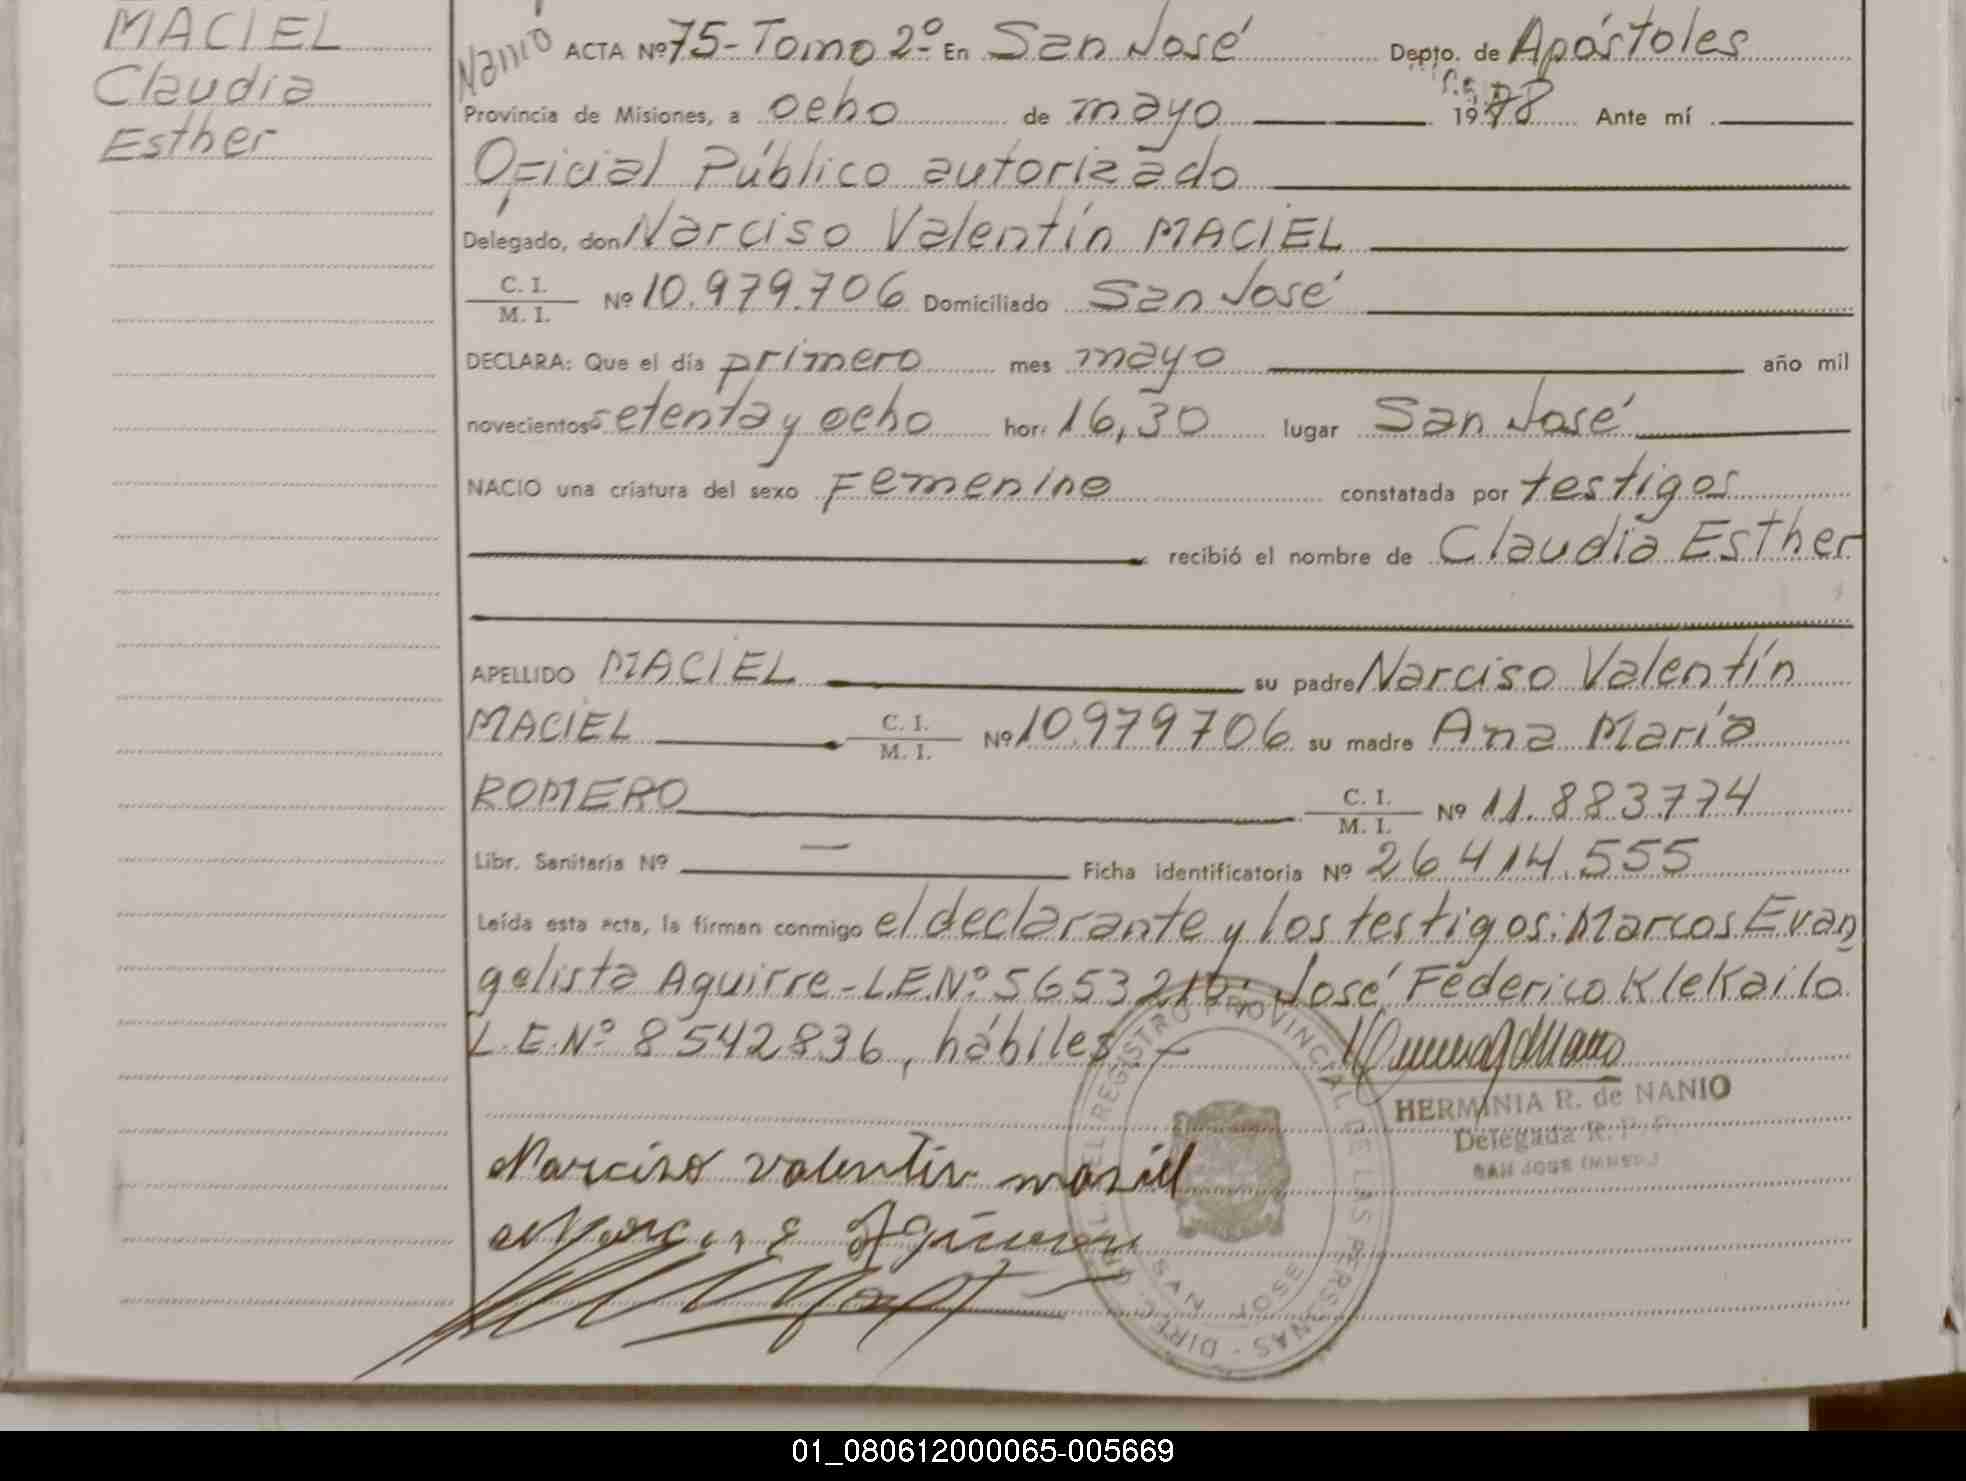 MACIEL
Claudia
Esther
Nanio
ACTA Nº 75-Tomo 2º En San José Depto. de Apóstoles
Provincia de Misiones, a ocho de mayo 1978 Ante mí
Oficial Público autorizado
Delegado, don Narciso Valentín MACIEL
C. I.
M. I. Nº 10.979.706 Domiciliado San José
DECLARA: Que el día primero mes mayo año mil
novecientos setenta y ocho hor: 16,30 lugar San José
NACIO una criatura del sexo Femenino constatada por testigos
recibió el nombre de Claudia Esther
APELLIDO MACIEL su padre Narciso Valentín
MACIEL C. I. M. I. Nº 10979706 su madre Ana María
ROMERO C. I. M. I. Nº 11.883.774
Libr. Sanitaria Nº — Ficha identificatoria Nº 26414.555
Leída esta acta, la firman conmigo el declarante y los testigos: Marcos Evan
gelista Aguirre-L.E.Nº 5653210; José Féderico Klekailo
L.E.Nº 8542836, hábiles. —
HERMINIA R. de NANIO
Delegada R. P. P.
SAN JOSE (MNES.)
Narciso valentin masiel
Marcos E Aguirre
DIREC. GRAL. DEL REGISTRO PROVINCIAL DE LAS PERSONAS
SAN JOSE
01_080612000065-005669